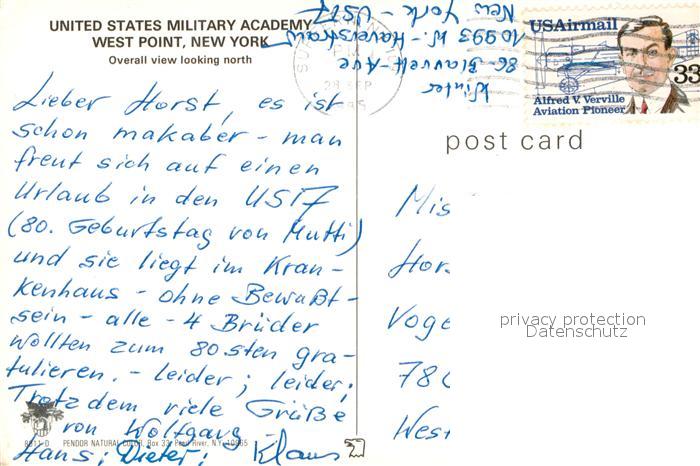 UNITED STATES MILITARY ACADEMY
WEST POINT, NEW YORK
Overall view looking north
Lieber Horst, es ist
schon makaber - man
freut sich auf einen
Urlaub in den USA
(80. Geburtstag von Mutti)
und sie liegt im Kran-
kenhaus - ohne Bewußt-
sein - alle - 4 Brüder
wollten zum 80.sten gra-
tulieren. - leider; leider;
Trotzdem viele Grüße
von Wolfgang
Hans; Dieter; Klaus
PENDOR NATURAL COLOR, Box 33, Pearl River, N.Y. 10965
Winter
86-Blauvelt-Ave
10993 W.-Haverstraw
New York - USA
28 SEP
USAirmail
33
Alfred V. Verville
Aviation Pioneer
post card
Mis
Hor
Voge
780
West
privacy protection
Datenschutz